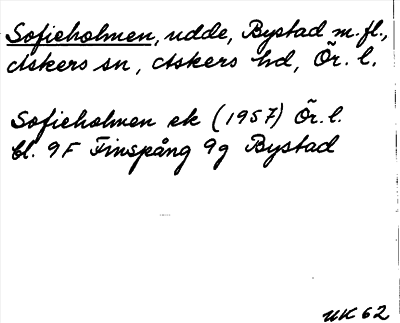 Sofieholmen, udde, Bystad m.fl.,
Askers sn, Askers hd, Ör. l.
Sofieholmen ek (1957) Ör. l.
bl. 9F Finspång 9g Bystad
UK 62